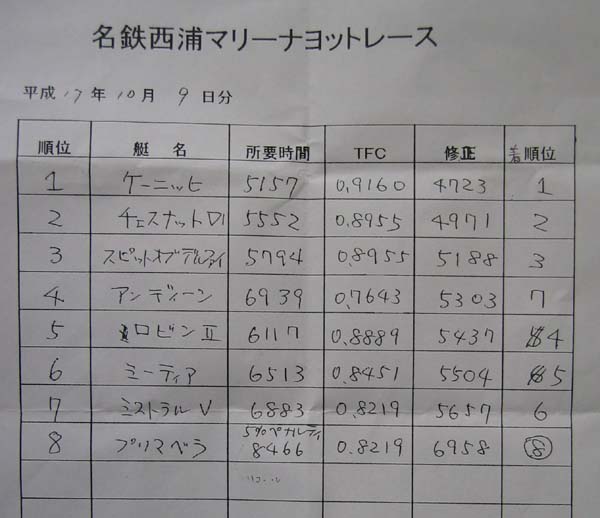 名鉄西浦マリーナヨットレース
平成17年10月9日分
順位 艇名 所要時間 TFC 修正 着順位
1 ケーニッヒ 5157 0.9160 4723 1
2 チェスナットDI 5552 0.8955 4971 2
3 スピットオブデルファイ 5794 0.8955 5188 3
4 アンディーン 6939 0.7643 5303 7
5 ロビンII 6117 0.8889 5437 4
6 ミーティア 6513 0.8451 5504 5
7 ミストラルV 6883 0.8219 5657 6
5%ペナルティ
8 プリマベラ 8466 0.8219 6958 8